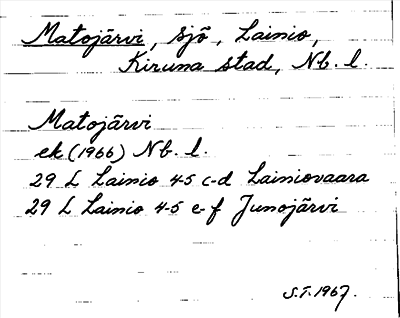 Matojärvi, sjö, Lainio,
Kiruna stad, Nb. l.
Matojärvi
ek (1966) Nb. l.
29 L Lainio 4-5 c-d Lainiovaara
29 L Lainio 4-5 e-f Junojärvi
S.T. 1967.